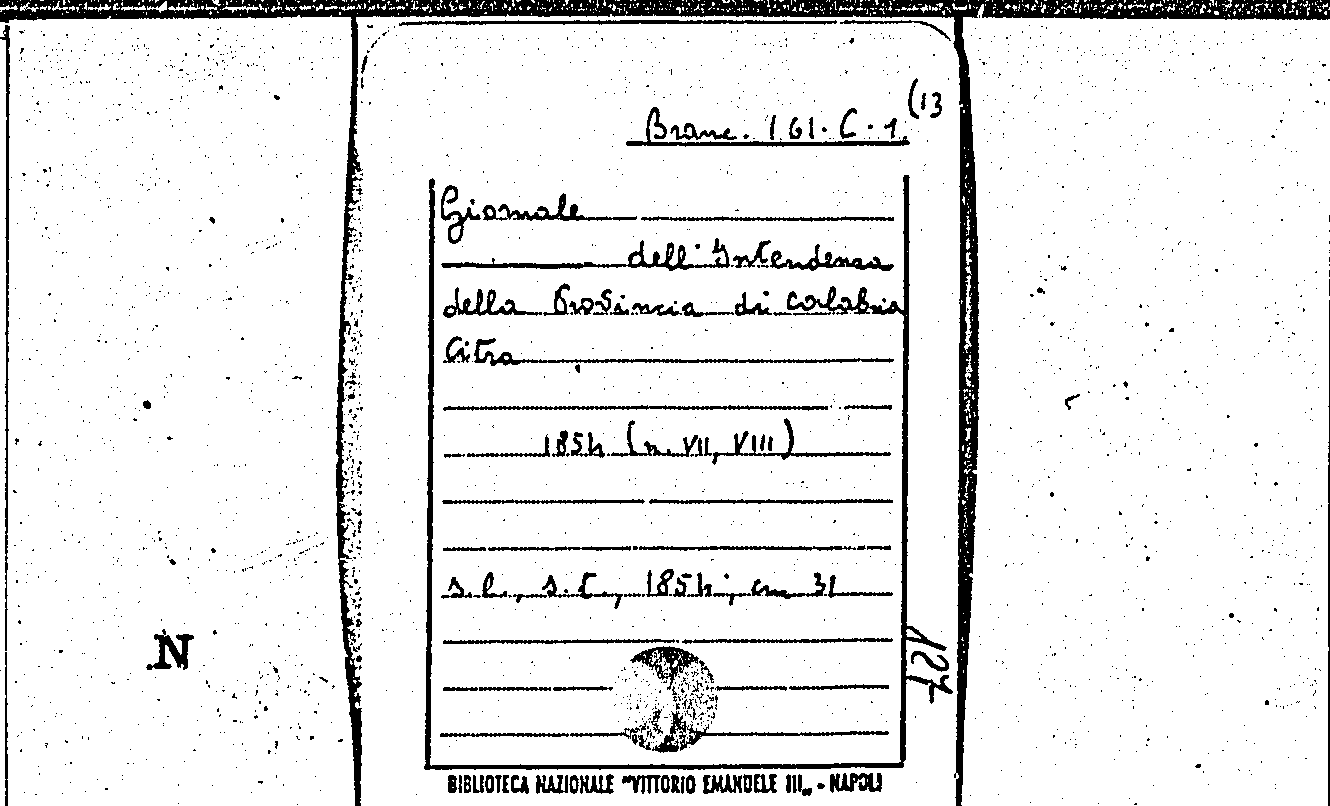 Branc. 161. C. 1. (13
Giornale
dell'Intendenza
della Provincia di Calabria
Citra
1854 (n. VII, VIII)
s.l., s.t., 1854; cm 31
N
127
BIBLIOTECA NAZIONALE "VITTORIO EMANUELE III„ - NAPOLI